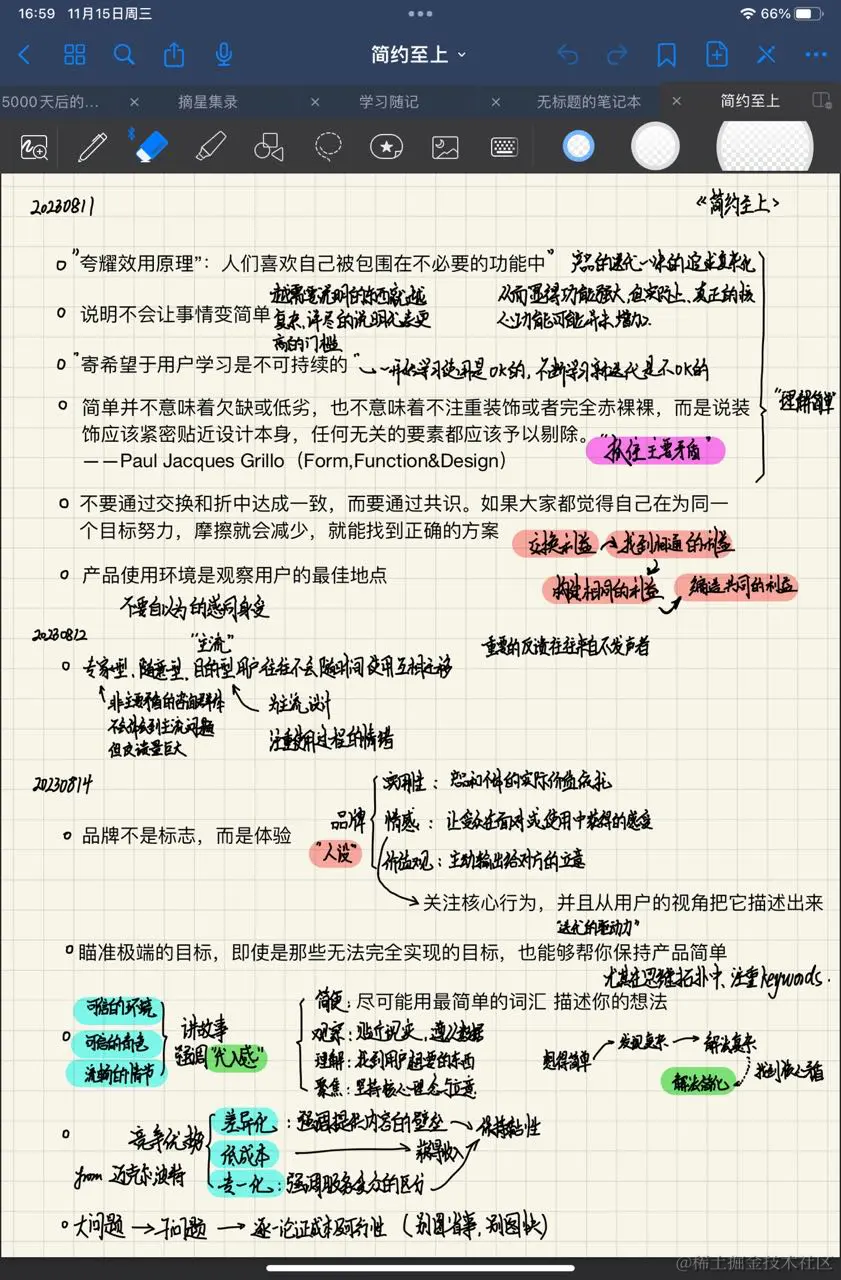 16:59 11月15日周三
66%
简约至上
5000天后的... × 摘星集录 × 学习随记 × 无标题的笔记本 × 简约至上
20230811 《简约至上》
"夸耀效用原理"：人们喜欢自己被包围在不必要的功能中"
产品的迭代一味的追求复杂化
从而显得功能强大，但实际上，真正的核
心功能可能并未增加。
说明不会让事情变简单
越需要说明的东西就越
复杂，详尽的说明代表更
高的门槛
"寄希望于用户学习是不可持续的"
一开始学习使用是OK的，不断学习新迭代是不OK的
简单并不意味着欠缺或低劣，也不意味着不注重装饰或者完全赤裸裸，而是说装
饰应该紧密贴近设计本身，任何无关的要素都应该予以剔除。
——Paul Jacques Grillo（Form,Function&Design）
"抓住主要矛盾"
"理解简单"
不要通过交换和折中达成一致，而要通过共识。如果大家都觉得自己在为同一
个目标努力，摩擦就会减少，就能找到正确的方案
交换利益 → 找到相通的利益
构建相同的利益 → 缔造共同的利益
产品使用环境是观察用户的最佳地点
不要自以为的感同身受
20230812
"主流"
重要的反馈往往来自不发声者
专家型、随意型、目的型用户往往不会随时间使用互相迁移
非主要矛盾的咨询群体
不会体会到主流问题
但反馈量巨大
为主流设计
注重使用过程的情绪
20230814
品牌不是标志，而是体验
品牌
"人设"
实用性：产品和个体的实际价值依托
情感：让受众在面对或使用中获得的感受
价值观：主动输出给对方的立意
关注核心行为，并且从用户的视角把它描述出来
"迭代的驱动力"
瞄准极端的目标，即使是那些无法完全实现的目标，也能够帮你保持产品简单
尤其在思维拓扑中，注重keywords.
可信的环境
可信的角色
流畅的情节
讲故事
强调"代入感"
简短：尽可能用最简单的词汇 描述你的想法
观察：贴近现实，遵从数据
理解：找到用户想要的东西
聚焦：坚持核心理念与立意
想得简单 → 发现复杂 → 解法复杂
找到核心价值
解法简化
竞争优势
from 迈克尔波特
差异化：强调提供内容的壁垒 → 保持黏性
低成本 → 获得收入
专一化：强调服务受众的区分
大问题 → 子问题 → 逐一论证成本及可行性（别图省事，别图快）
@稀土掘金技术社区